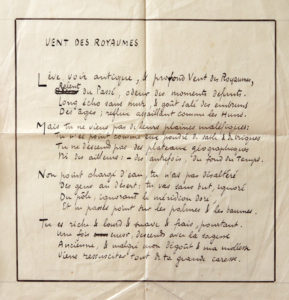 VENT DES ROYAUMES
Lève, voix antique, & profond Vent des Royaumes,
Relent du Passé, odeur des moments défunts.
Long écho sans mur, & goût salé des embruns
Des âges; reflux assaillant comme les Huns.
Mais tu ne viens pas de leurs plaines maléfiques:
Tu n'es point comme eux poudré de sable & de briques
Tu ne descends pas des plateaux géographiques
Ni des ailleurs: - des autrefois, du fond du temps.
Non point chargé d'eau, tu n'as pas désaltéré
Des gens au désert: tu vas sans but, ignoré
Du pôle, ignorant le méridion doré,
Et ne passes point sur les palmes & les baumes.
Tu es riche & lourd & suave & frais, pourtant.
Une fois encor, descends avec la sagesse
Ancienne, & malgré mon dégoût & ma mollesse
Viens ressusciter tout de ta grande caresse.